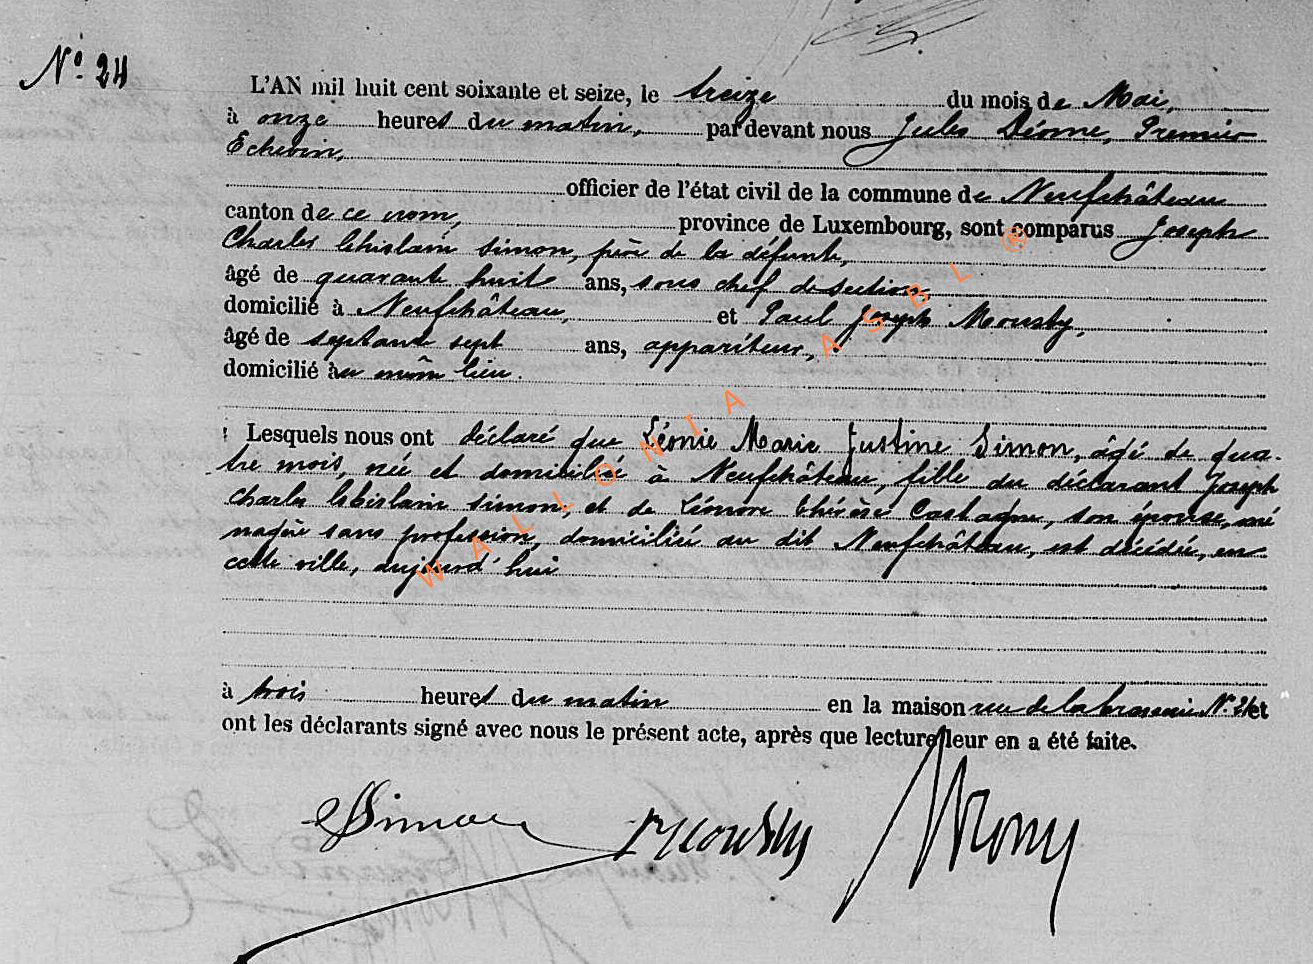 N° 24
L'AN mil huit cent soixante et seize, le treize du mois de Mai,
à onze heures du matin, par devant nous Jules Déome, Premier
Echevin,
officier de l'état civil de la commune de Neufchâteau
canton de ce nom, province de Luxembourg, sont comparus Joseph
Charles Ghislain Simon, père de la défunte,
âgé de quarante huit ans, sous chef de section
domicilié à Neufchâteau, et Paul Joseph Mousty,
âgé de septante sept ans, appariteur,
domicilié au même lieu.
Lesquels nous ont déclaré que Léonie Marie Justine Simon, âgé de qua-
tre mois, née et domiciliée à Neufchâteau, fille du déclarant Joseph
Charles Ghislain Simon, et de Léonore Thérèse Castagne, son épouse, mé
nagère sans profession, domiciliée au dit Neufchâteau, est décédée, en
cette ville, aujourd'hui
à trois heures du matin en la maison rue de la brasserie N° 24 et
ont les déclarants signé avec nous le présent acte, après que lecture leur en a été faite.
Simon Mousty
WALLONIA ASBL ®